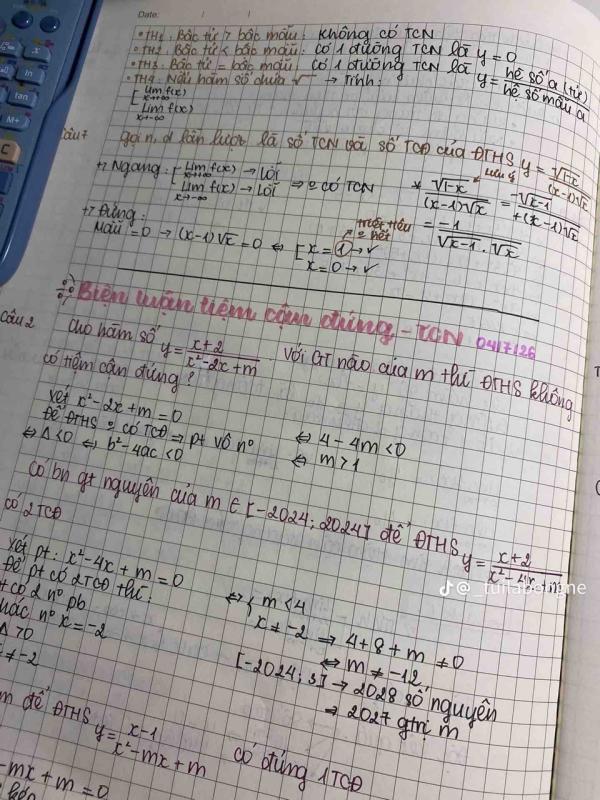 Date:
• TH1: Bậc tử > bậc mẫu: không có TCN
• TH2: Bậc tử < bậc mẫu: có 1 đường TCN là y = 0
• TH3: Bậc tử = bậc mẫu: có 1 đường TCN là y = hệ số a (tử) / hệ số mẫu a
• TH4: Nếu hàm số chứa √ → Tính:
[ lim f(x) x→+∞
lim f(x) x→-∞
Câu 7 gọi n, d lần lượt là số TCN và số TCĐ của ĐTHS y = √1-x / (x-1)√x
+> Ngang: [ lim f(x) x→+∞ → Lỗi
lim f(x) x→-∞ → Lỗi ⇒ 0 có TCN
* √1-x / (x-1)√x = -√x-1 / +(x-1)√x
= -1 / √x-1 . √x
+> Đứng:
Mẫu = 0 → (x-1)√x = 0 ⇔ [ x = 1 → ✓
x = 0 → ✓
triệt tiêu
0 hết
Biện luận tiệm cận đứng - TCN 0417126
Câu 2 cho hàm số y = x+2 / x²-2x+m . Với GT nào của m thì ĐTHS không
có tiệm cận đứng?
Xét x² - 2x + m = 0
Để ĐTHS 0 có TCĐ ⇒ pt vô n⁰
⇔ Δ < 0 ⇔ b² - 4ac < 0
⇔ 4 - 4m < 0
⇔ m > 1
Có bn gt nguyên của m ∈ [-2024; 2024] để ĐTHS y = x+2 / x²-4x+m
có 2 TCĐ
Xét pt: x² - 4x + m = 0
Để pt có 2 TCĐ thì:
có 2 n⁰ pb
khác n⁰ x = -2
Δ > 0
≠ -2
⇔ { m < 4
x ≠ -2 ⇒ 4 + 8 + m ≠ 0
⇔ m ≠ -12
[-2024; 3] → 2028 số nguyên
⇒ 2027 gtrị m
m để ĐTHS y = x-1 / x²-mx+m có đúng 1 TCĐ
-mx + m = 0
@_tuflabaligne